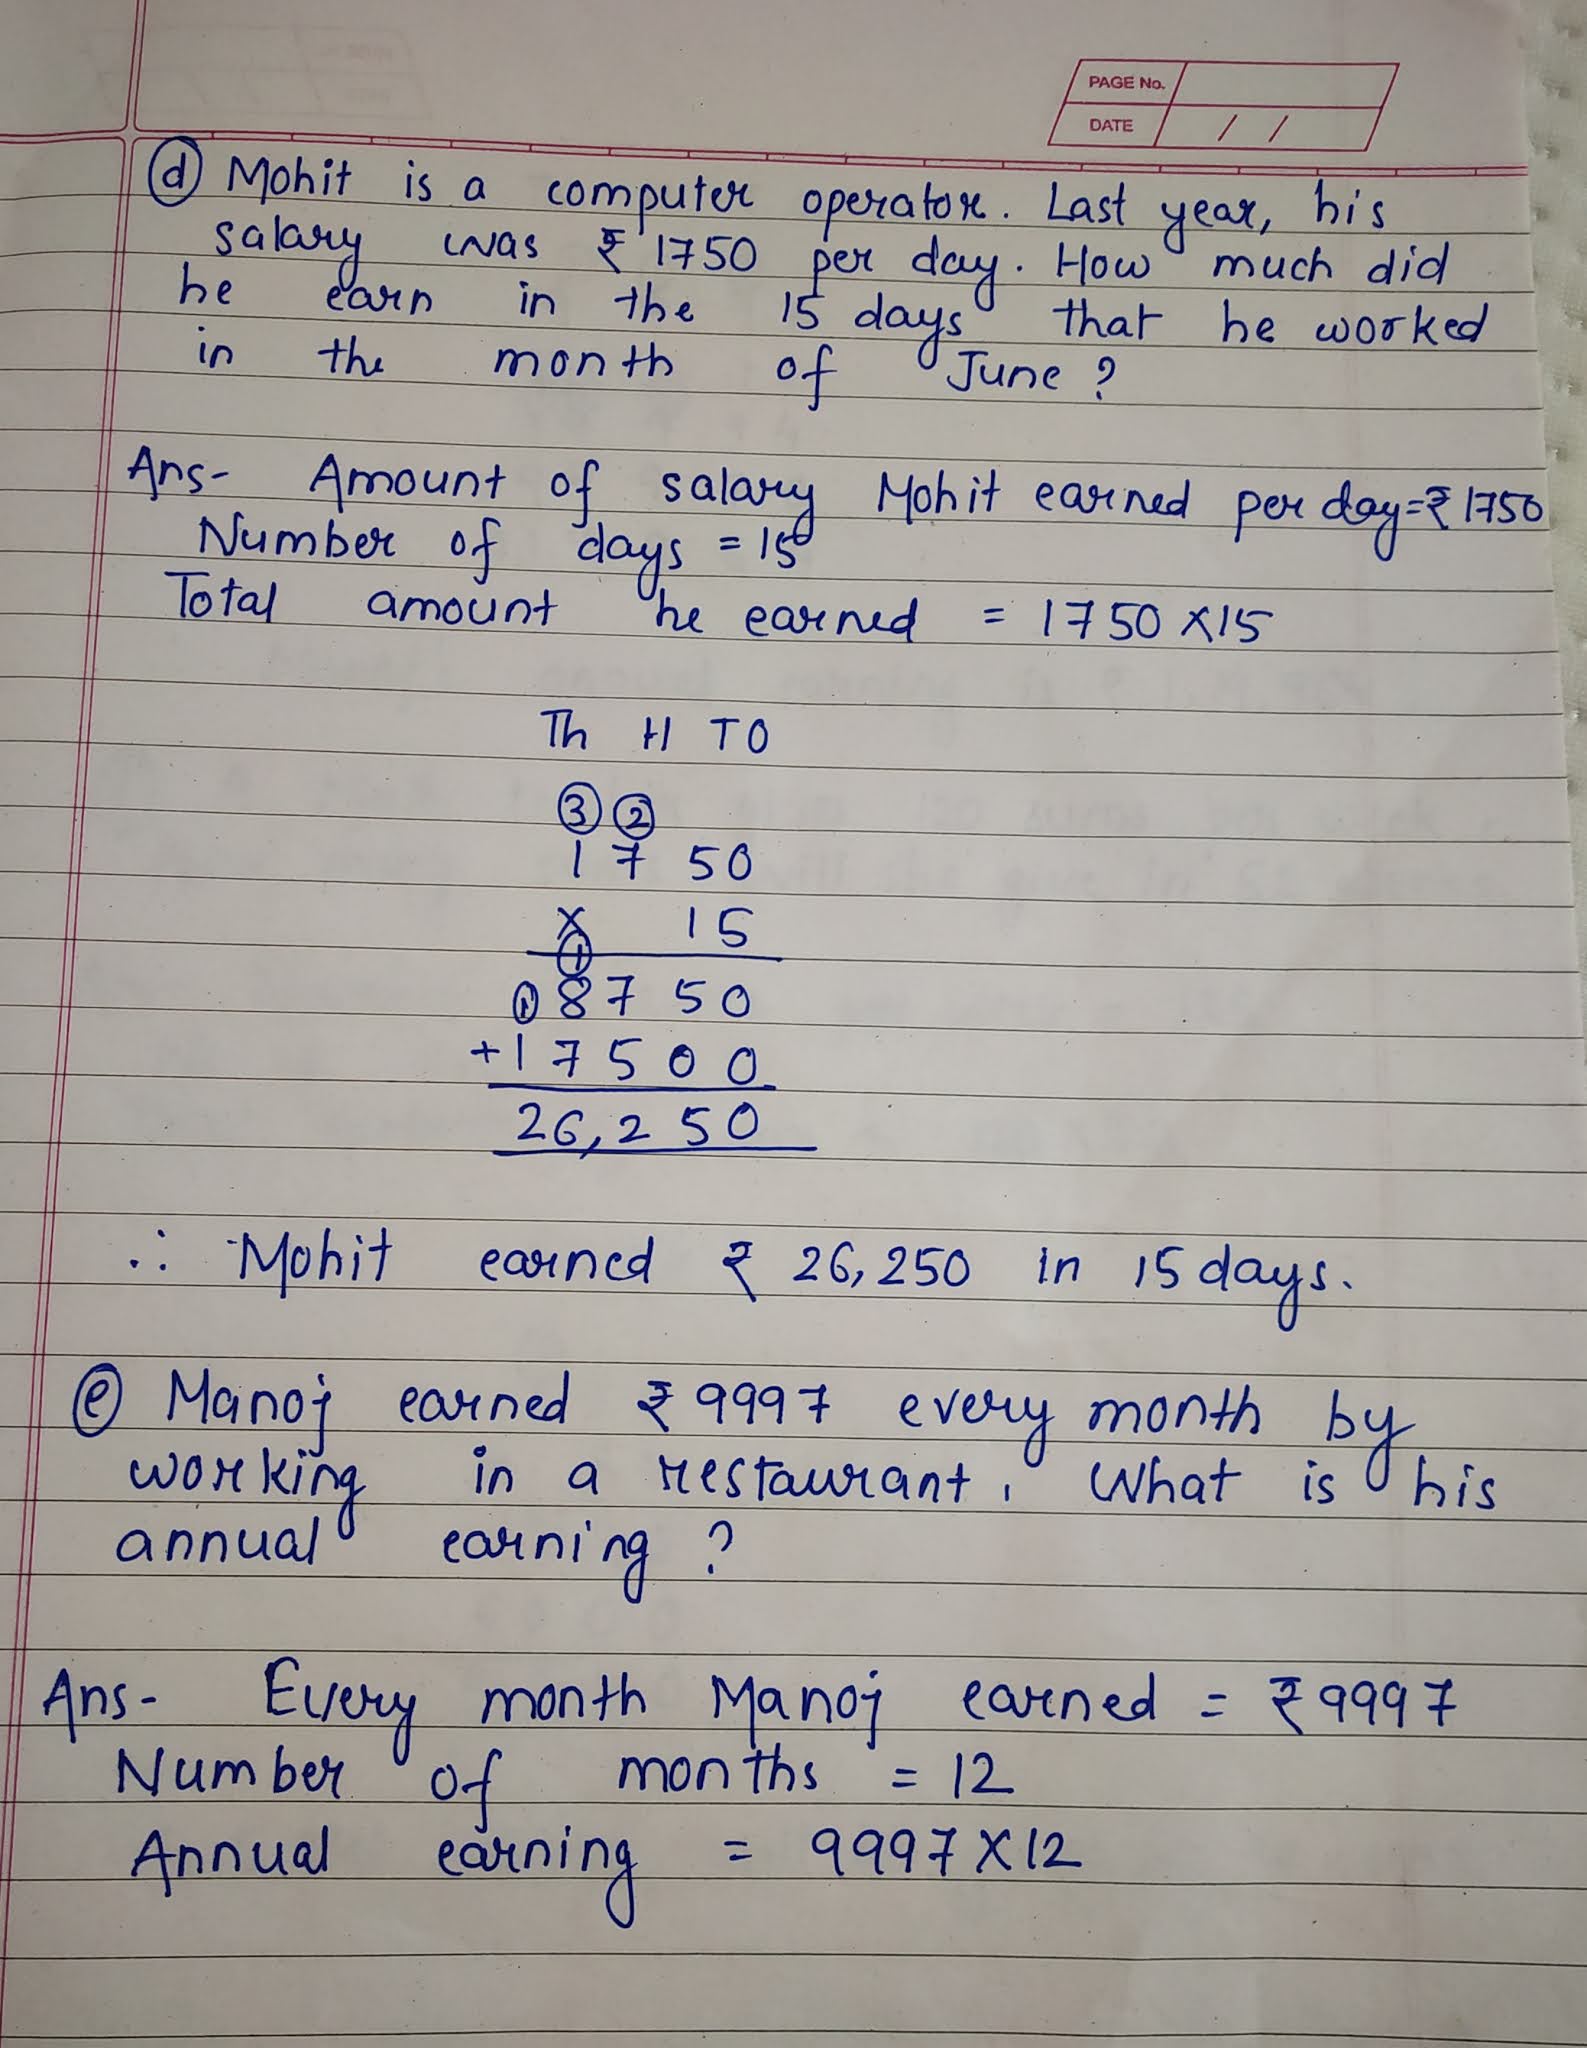 PAGE No.
DATE / /
(d) Mohit is a computer operator. Last year, his
salary was ₹ 1750 per day. How much did
he earn in the 15 days that he worked
in the month of June ?
Ans- Amount of salary Mohit earned per day=₹ 1750
Number of days = 15
Total amount he earned = 1750 x15
Th H T O
3 2
1 7 5 0
x 1 5
1
1 8 7 5 0
+ 1 7 5 0 0
26,2 5 0
∴ Mohit earned ₹ 26,250 in 15 days.
(e) Manoj earned ₹ 9997 every month by
working in a restaurant. What is his
annual earning ?
Ans- Every month Manoj earned = ₹ 9997
Number of months = 12
Annual earning = 9997 X 12